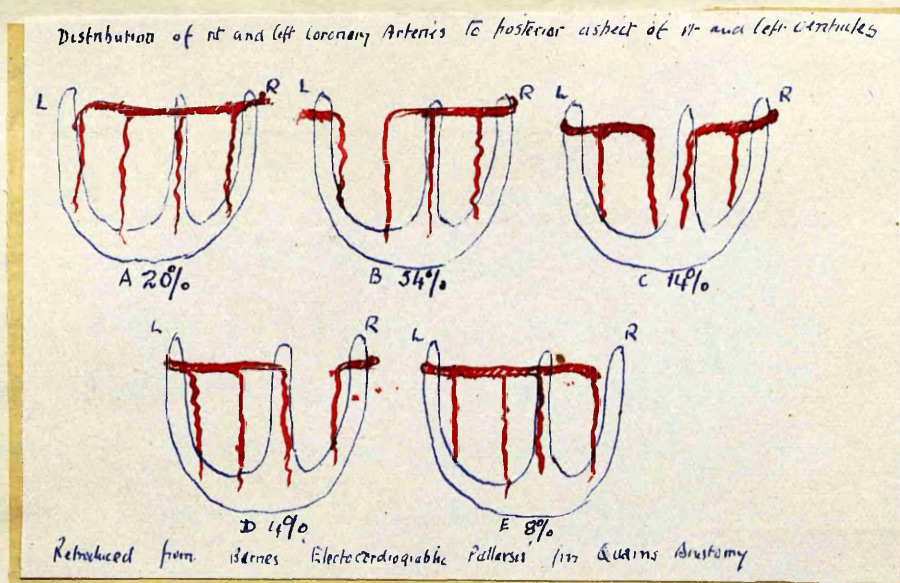 Distribution of rt and left Coronary Arteries to posterior aspect of rt and left ventricles
L R L R L R
A 20% B 54% C 14%
L R L R
D 4% E 8%
Reproduced from Barnes Electrocardiographic from Quains Anatomy